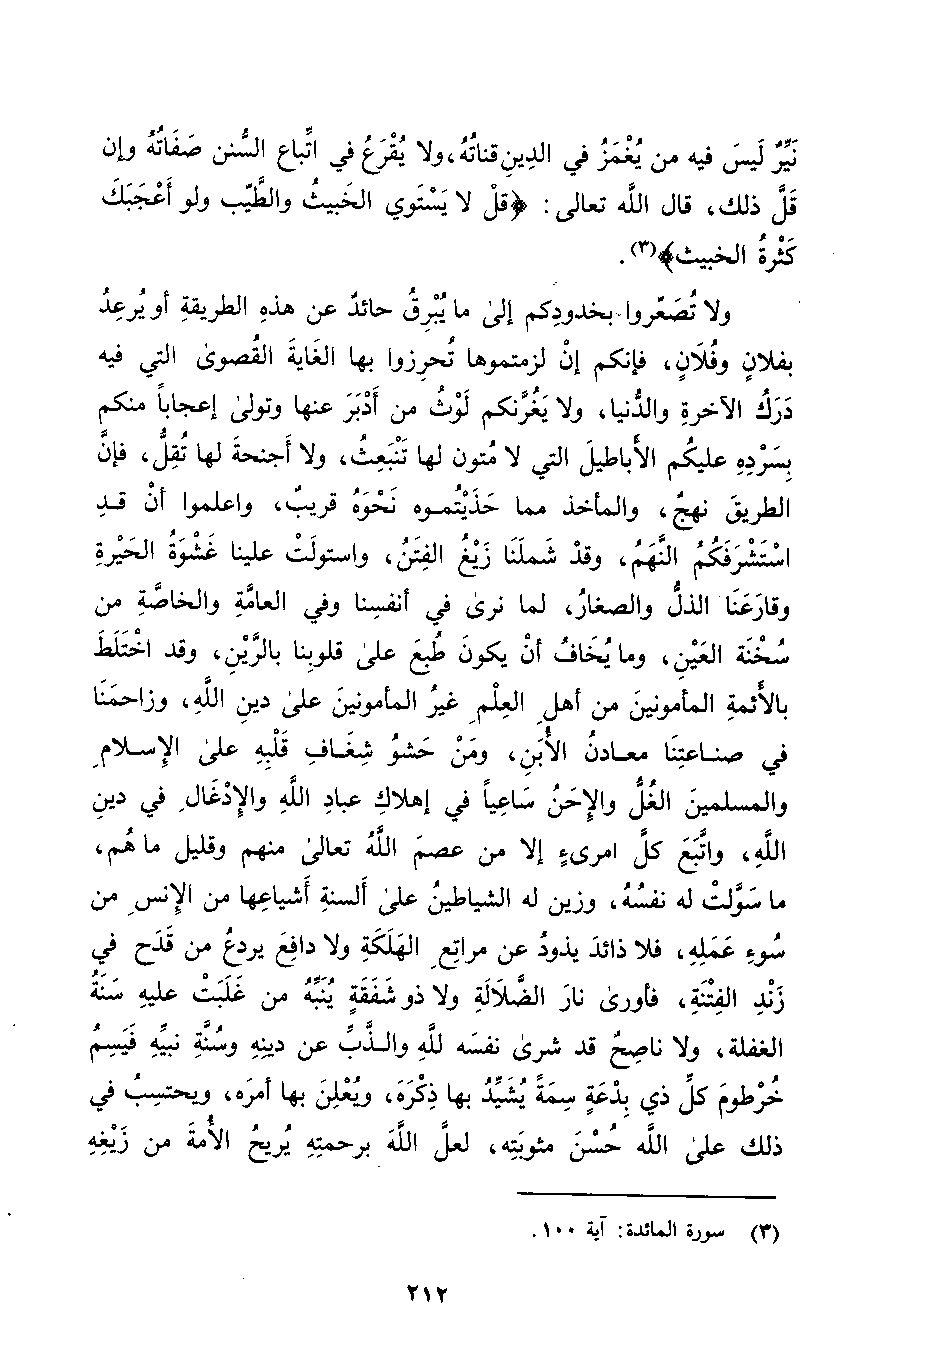 نَيِّرٌ لَيسَ فيه من يُغْمَزُ في الدينِ قناتُهُ، ولا يُقْرَعُ في اتِّباع السُّنن صَفَاتُهُ وإن
قَلَّ ذلك، قال اللَّه تعالى: ﴿قلْ لا يَسْتَوي الخَبيثُ والطَّيّب ولو أعْجَبَكَ
كَثْرةُ الخبيث﴾(٣).
ولا تُصَعّروا بخدودِكم إلىٰ ما يُبْرِقُ حائدٌ عن هذهِ الطريقةِ أو يُرعِدُ
بفلانٍ وفُلَانٍ، فإنكم إنْ لزمتموها تُحرِزوا بها الغَايةَ القُصوىٰ التي فيه
دَرَكُ الآخرةِ والدُّنيا، ولا يَغُرَّنكم لَوْثُ من أدْبَرَ عنها وتولىٰ إعجاباً منكم
بِسَرْدِهِ عليكُم الأباطيلَ التي لا مُتون لها تَنْبَعِثُ، ولا أجنحةَ لها تُقِلُّ، فإنَّ
الطريقَ نهجٌ، والمأخذ مما حَذَيْتُموه نَحْوَهُ قريبٌ، واعلموا أنْ قدِ
اسْتَشْرَفَكُمُ النَّهَمُ، وقدْ شَملَنَا زَيْغُ الفِتَنُ، واستولَتْ علينا غَشْوَةُ الحَيْرةِ
وقارَعَنَا الذلُّ والصغارُ، لما نرىٰ في أنفسِنا وفي العامَّةِ والخاصَّةِ من
سُخْنَة العَيْنِ، وما يُخَافُ أنْ يكونَ طُبعَ علىٰ قلوبِنا بالرَّيْنِ، وقد اخْتَلَطَ
بالأئمةِ المأمونينَ من أهلِ العِلْمِ غيرُ المأمونينَ علىٰ دينِ اللَّهِ، وزاحمَنَا
في صناعتِنَا معادنُ الأُبَنِ، ومَنْ حَشوُ شِغَافِ قَلْبِهِ علىٰ الإسلامِ
والمسلمينَ الغُلُّ والإحَنُ سَاعِياً في إهلاكِ عبادِ اللَّهِ والإدْغَالِ في دينِ
اللَّهِ، واتَّبَعَ كلَّ امرىءٍ إلا من عصمَ اللَّهُ تعالىٰ منهم وقليل ما هُم،
ما سَوَّلتْ له نفسُهُ، وزين له الشياطينُ علىٰ ألسنةِ أشياعِها من الإنسِ من
سُوءِ عَمَلِهِ، فلا ذائدَ يذودُ عن مراتِعِ الهَلَكَةِ ولا دافعَ يردعُ من قَدَح في
زَنْدِ الفِتْنَةِ، فأورىٰ نارَ الضَّلَالَةِ ولا ذو شَفَقَةٍ يُنَبِّهُ من غَلَبَتْ عليهِ سَنَةُ
الغفلة، ولا ناصِحٌ قد شرىٰ نفسَه للَّهِ والذَّبِّ عن دينِهِ وسُنَّةِ نبيِّهِ فَيَسِمُ
خُرْطومَ كلِّ ذي بِدْعَةٍ سِمَةً يُشَيِّدُ بها ذِكْرَهَ، ويُعْلِنَ بها أمرَه، ويحتسِبُ في
ذلك علىٰ اللَّه حُسْنَ مثوبَتِه، لعلَّ اللَّهَ برحمتِهِ يُريحُ الأُمةَ من زَيْغِهِ
(٣) سورة المائدة: آية ١٠٠.
٢١٢